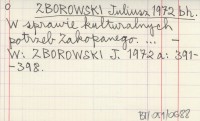 o ZBOROWSKI Juliusz 1972 bh.
W sprawie kulturalnych
potrzeb Zakopanego. ... —
W: ZBOROWSKI J. 1972a: 391-
-398.